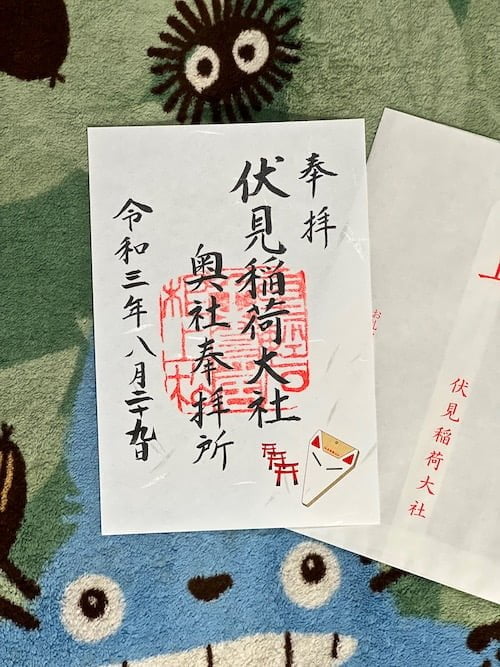 奉拝
伏見稲荷大社
奥社奉拝所
令和三年八月二十九日
伏見稲荷大社